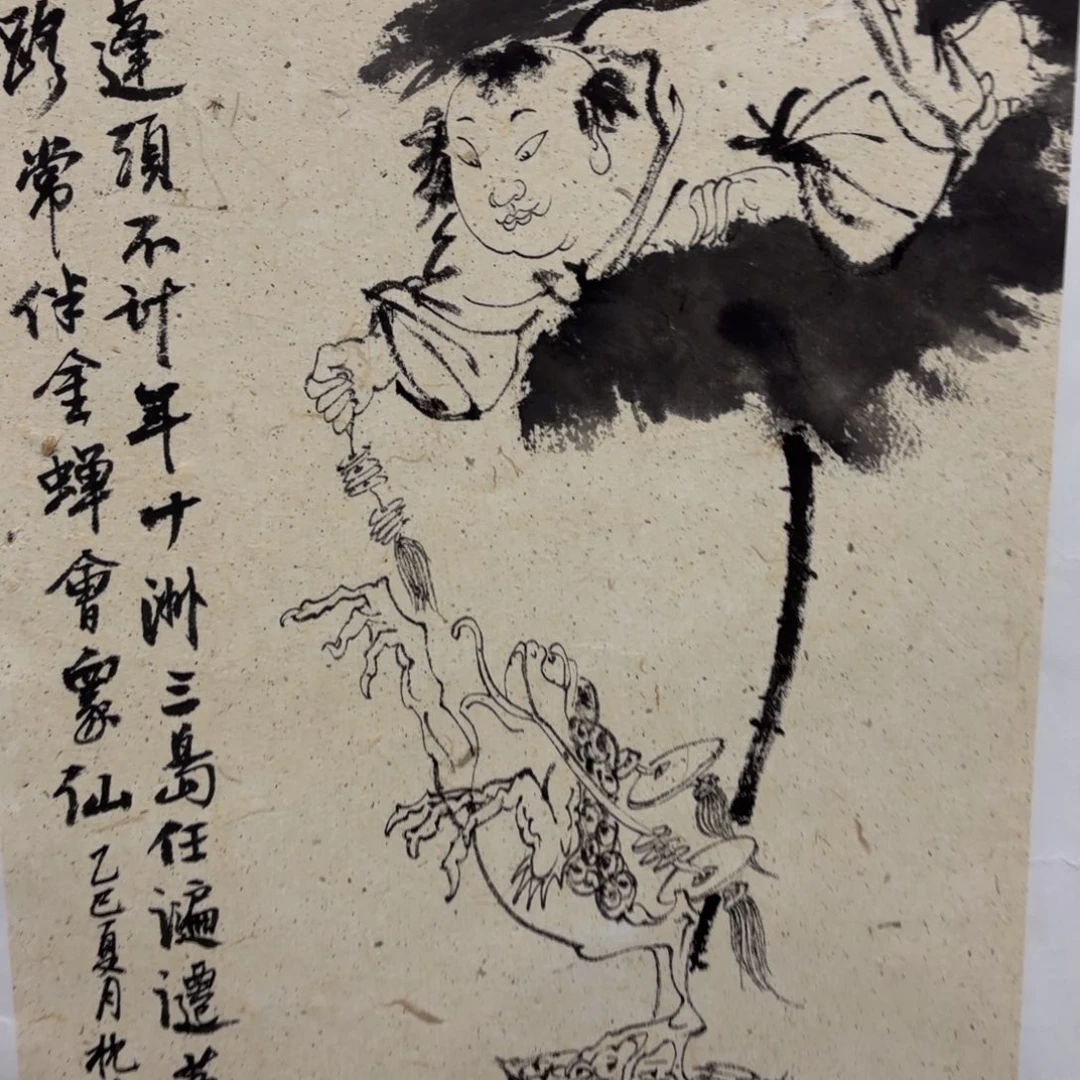 蓬頭不計年十洲三島任遍遷
路常伴金蟬會衆仙
乙巳夏月